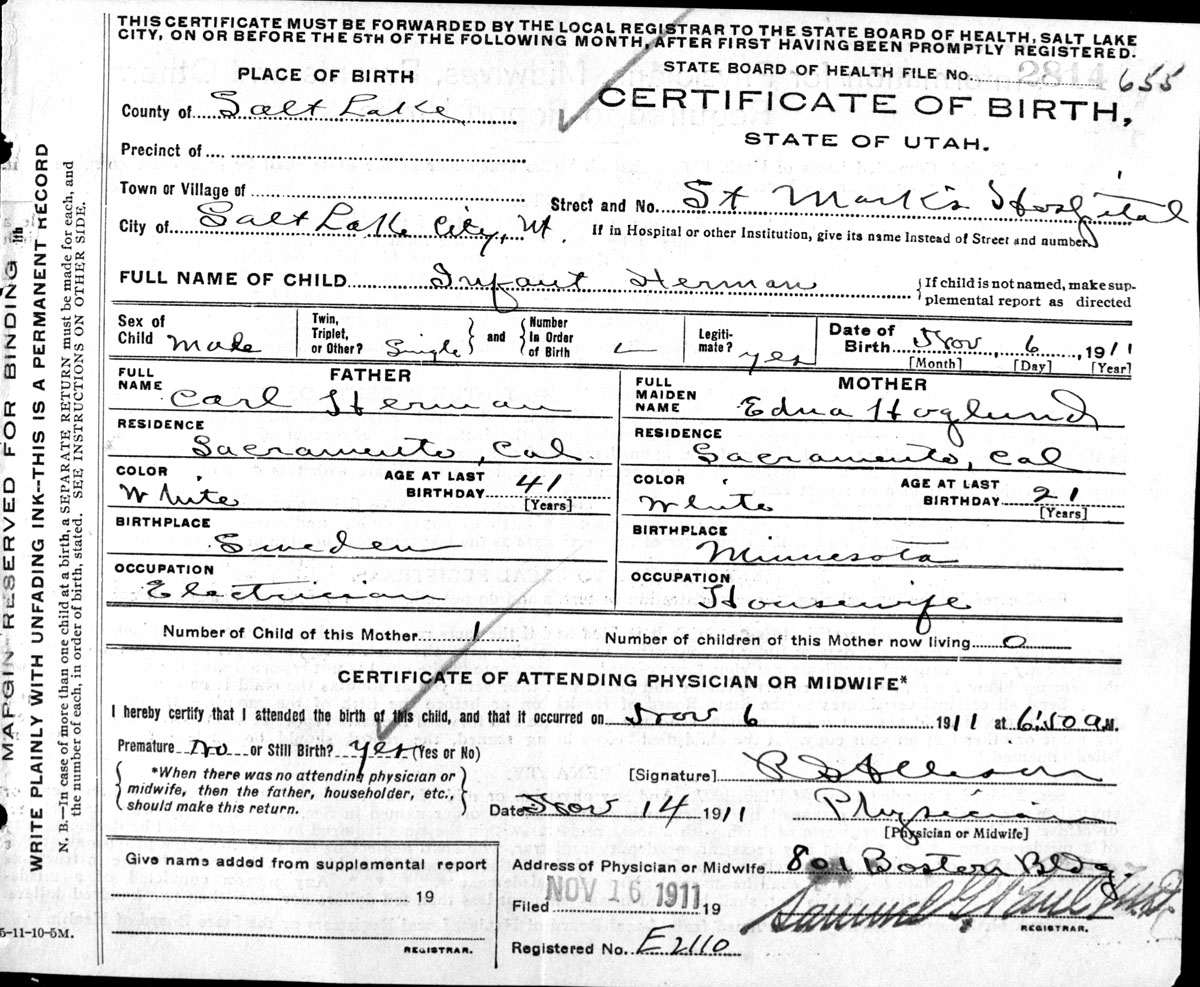 THIS CERTIFICATE MUST BE FORWARDED BY THE LOCAL REGISTRAR TO THE STATE BOARD OF HEALTH, SALT LAKE
CITY, ON OR BEFORE THE 5TH OF THE FOLLOWING MONTH, AFTER FIRST HAVING BEEN PROMPTLY REGISTERED.
PLACE OF BIRTH
STATE BOARD OF HEALTH FILE No. 2814 655
County of Salt Lake
CERTIFICATE OF BIRTH,
STATE OF UTAH.
Precinct of
Town or Village of
Street and No. St Mark's Hospital
City of Salt Lake City, Ut.
If in Hospital or other Institution, give its name Instead of Street and number.
FULL NAME OF CHILD Infant Herman
If child is not named, make sup-
plemental report as directed
Sex of Child Male
Twin, Triplet, or Other? Single
and
Number In Order of Birth
Legiti-mate? yes
Date of Birth Nov, 6, 1911
[Month] [Day] [Year]
FATHER
FULL NAME Carl Herman
RESIDENCE
Sacramento, Cal
COLOR White
AGE AT LAST BIRTHDAY 41 [Years]
BIRTHPLACE
Sweden
OCCUPATION
Electrician
MOTHER
FULL MAIDEN NAME Edna Hoglund
RESIDENCE
Sacramento, Cal
COLOR White
AGE AT LAST BIRTHDAY 21 [Years]
BIRTHPLACE
Minnesota
OCCUPATION
Housewife
Number of Child of this Mother 1
Number of children of this Mother now living 0
CERTIFICATE OF ATTENDING PHYSICIAN OR MIDWIFE*
I hereby certify that I attended the birth of this child, and that it occurred on Nov 6 1911 at 6:50 A.M.
Premature No or Still Birth? yes (Yes or No)
*When there was no attending physician or
midwife, then the father, householder, etc.,
should make this return.
[Signature]
Date Nov 14 1911
Physician
[Physician or Midwife]
Give name added from supplemental report
19
REGISTRAR.
Address of Physician or Midwife 801 Boston Bldg.
Filed NOV 16 1911 19
REGISTRAR.
Registered No. E2110
5-11-10-5M.
MARGIN RESERVED FOR BINDING
WRITE PLAINLY WITH UNFADING INK--THIS IS A PERMANENT RECORD
N. B.—In case of more than one child at a birth, a SEPARATE RETURN must be made for each, and
the number of each, in order of birth, stated. SEE INSTRUCTIONS ON OTHER SIDE.